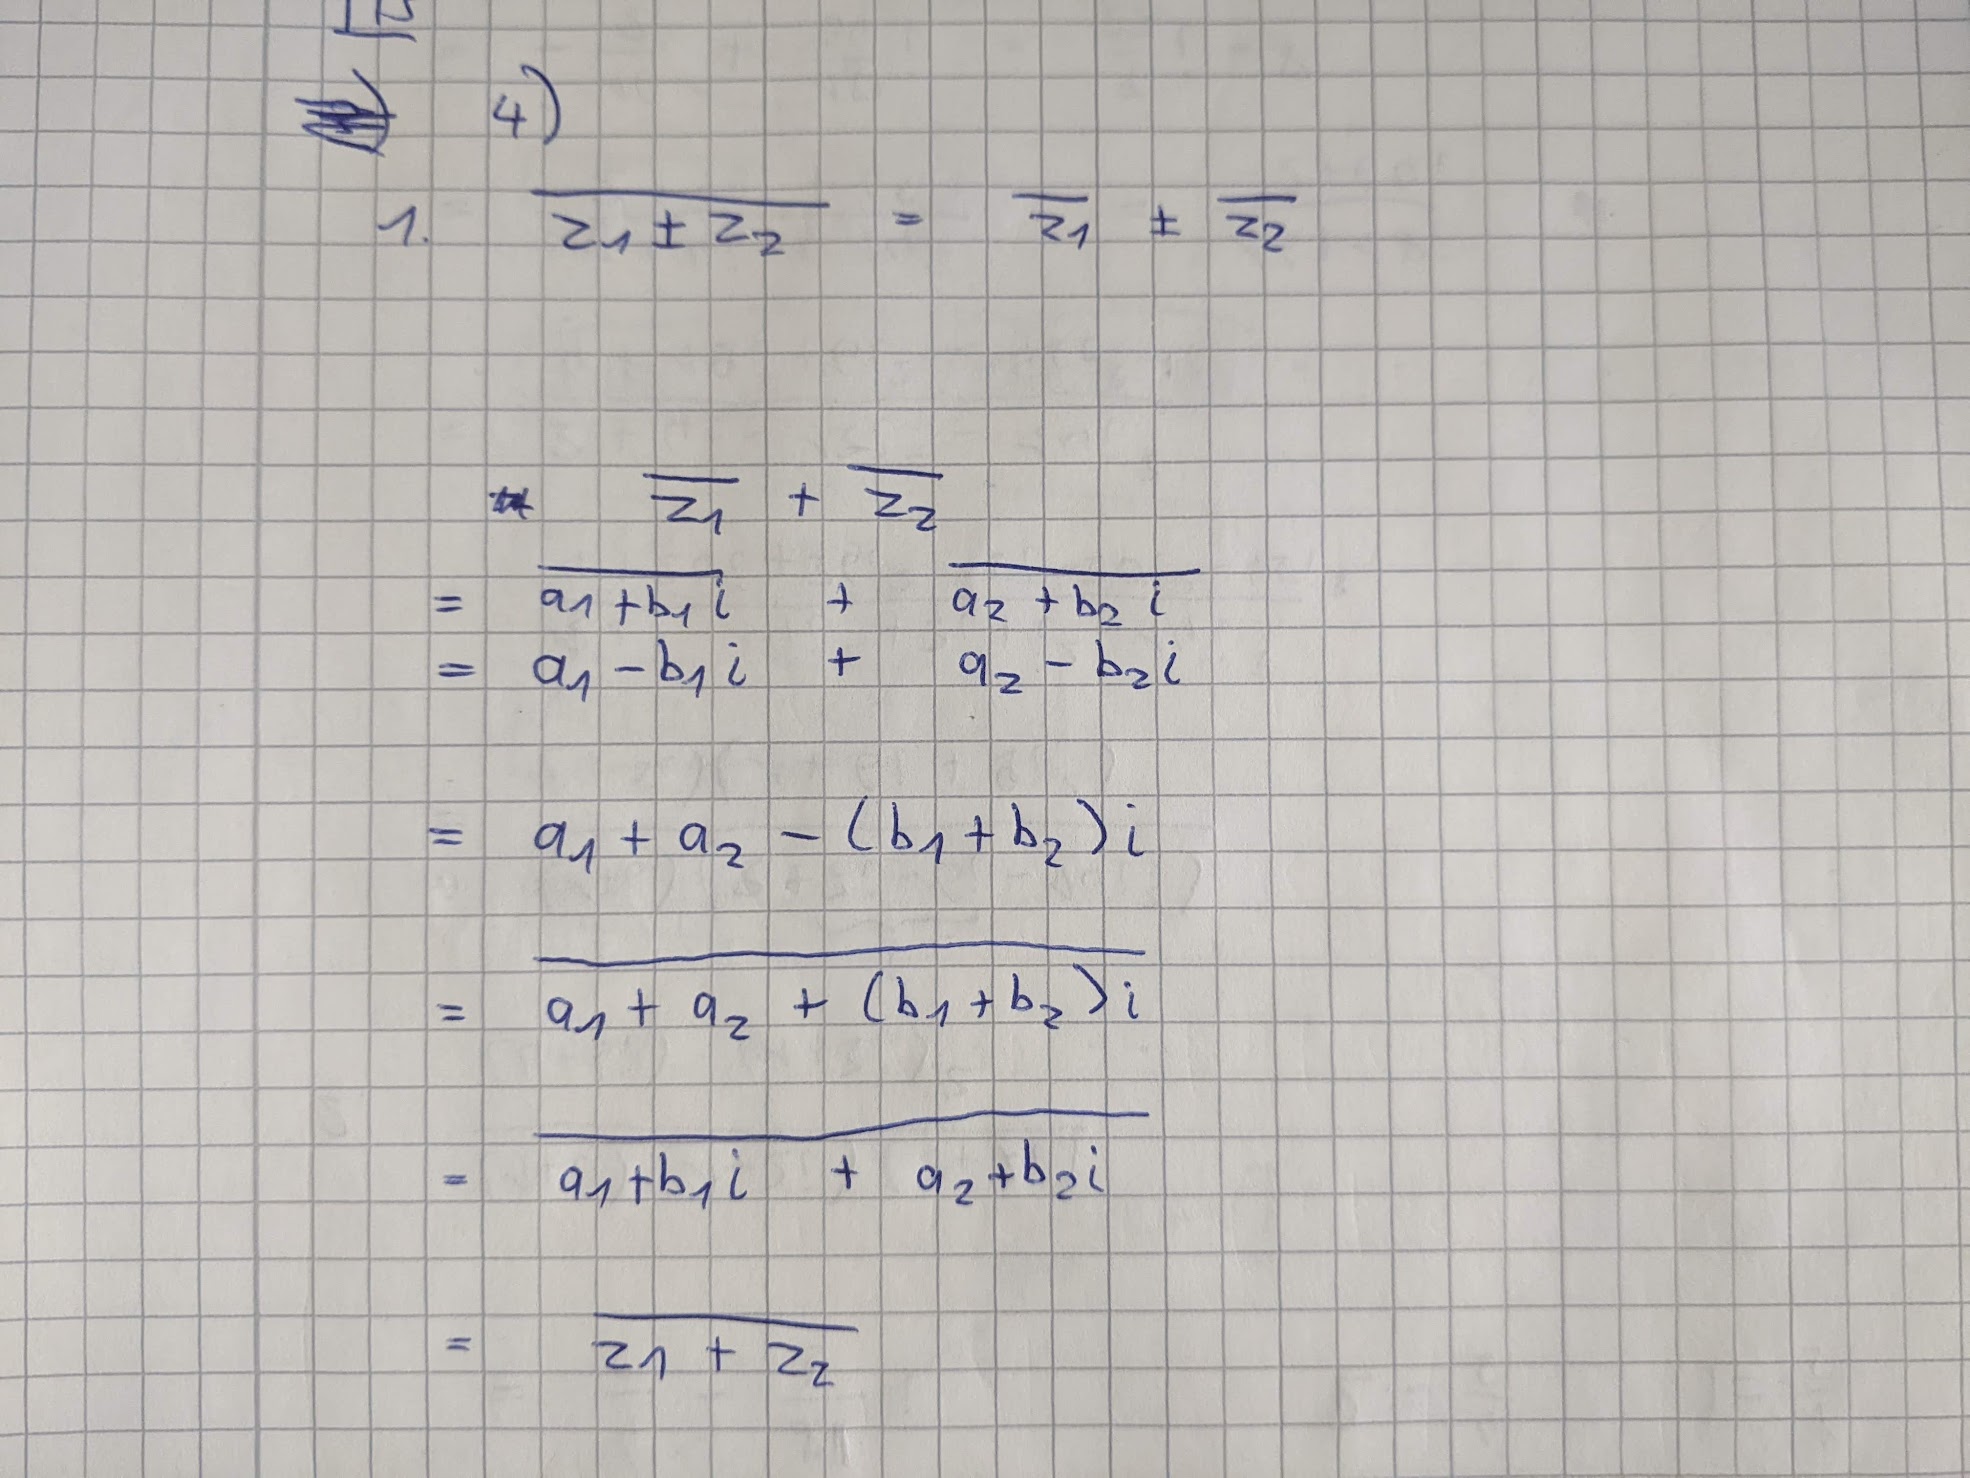 4)
1. z̅₁̅ ̅±̅ ̅z̅₂̅ = z̅₁̅ ± z̅₂̅
z̅₁̅ + z̅₂̅
= a̅₁̅ ̅+̅ ̅b̅₁̅i̅ + a̅₂̅ ̅+̅ ̅b̅₂̅ ̅i̅
= a₁ - b₁i + a₂ - b₂i
= a₁ + a₂ - (b₁ + b₂)i
= a̅₁̅ ̅+̅ ̅a̅₂̅ ̅+̅ ̅(̅b̅₁̅ ̅+̅ ̅b̅₂̅)̅i̅
= a̅₁̅ ̅+̅ ̅b̅₁̅i̅ ̅+̅ ̅a̅₂̅ ̅+̅ ̅b̅₂̅i̅
= z̅₁̅ ̅+̅ ̅z̅₂̅